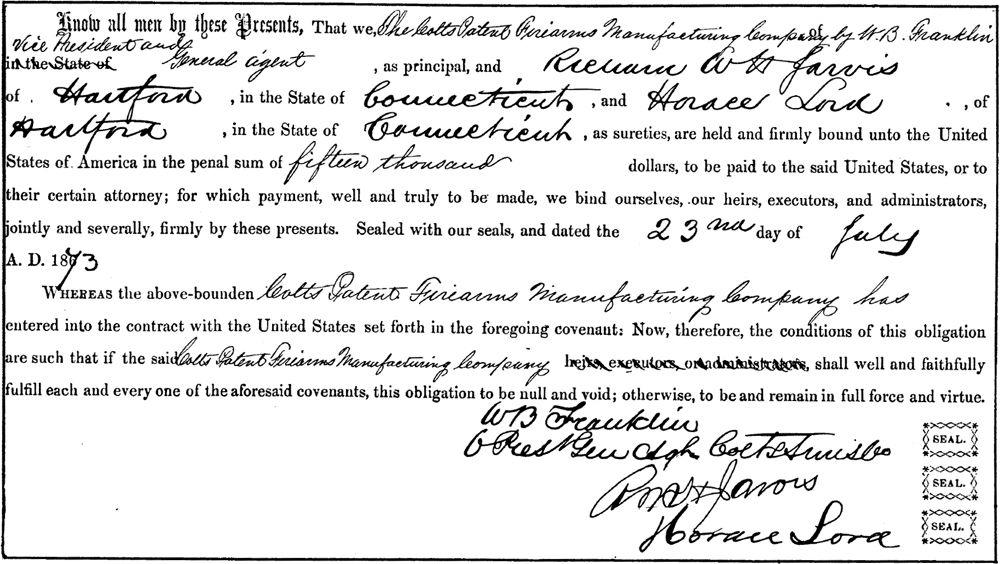 Know all men by these Presents, That we, The Colts Patent Firearms Manufacturing Company by W.B. Franklin
Vice President and
in the State of General agent , as principal, and Richard W H Jarvis
of . Hartford , in the State of Connecticut , and Horace Lord . , of
Hartford , in the State of Connecticut , as sureties, are held and firmly bound unto the United
States of America in the penal sum of fifteen thousand dollars, to be paid to the said United States, or to
their certain attorney; for which payment, well and truly to be made, we bind ourselves, our heirs, executors, and administrators,
jointly and severally, firmly by these presents. Sealed with our seals, and dated the 23nd day of July
A. D. 1873
WHEREAS the above-bounden Colts Patent Firearms Manufacturing Company has
entered into the contract with the United States set forth in the foregoing covenant: Now, therefore, the conditions of this obligation
are such that if the said Colts Patent Firearms Manufacturing Company heirs, executors, or administrators, shall well and faithfully
fulfill each and every one of the aforesaid covenants, this obligation to be null and void; otherwise, to be and remain in full force and virtue.
WB Franklin
V Prest Gen Agt Colts
Jarvis
Horace Lord
SEAL.
SEAL.
SEAL.